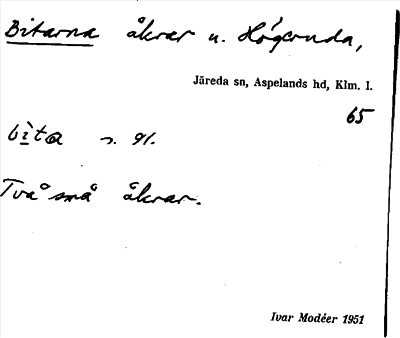 Bitarna åkrar u. Högeruda,
Järeda sn, Aspelands hd, Klm. l.
65
bìta
Två små åkrar.
Ivar Modéer 1951